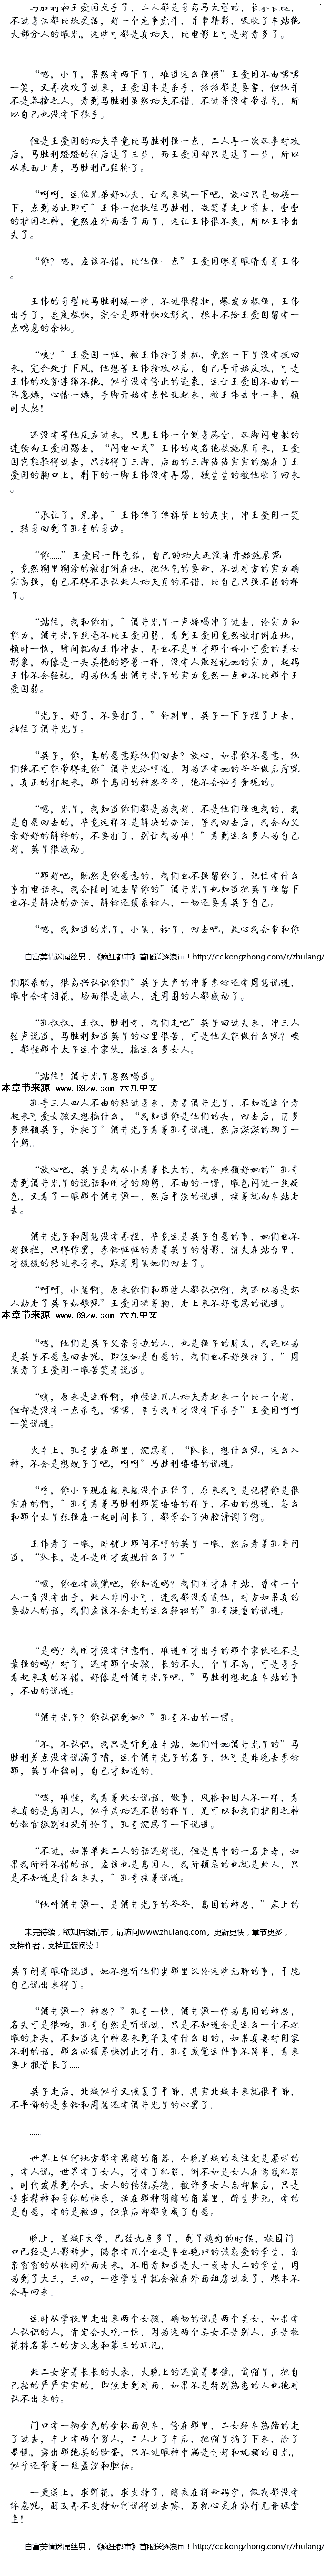 “嗯，小子，果然有两下子，难道这么强横”王爱国不由嘿嘿
一笑，又再次攻了过来，王爱国本是杀手，招招都是要害，但他并
不是莽撞之人，看到马胜利虽然功夫不错，不过并没有带杀气，所
以自己也没有下狠手。
但是王爱国的功夫毕竟比马胜利强一点，二人再一次双拳对攻
后，马胜利蹬蹬的往后退了三步，而王爱国却只是退了一步，所以
从表面上看，马胜利已经输了。
“呵呵，这位兄弟好功夫，让我来试一下吧，放心只是切磋一
下，点到为止即可”王伟一把扶住马胜利，微笑着走上前去，堂堂
的护国之神，竟然在外面丢了面子，这让王伟很不爽，所以王伟出
头了。
“你？嗯，应该不错，比他强一点”王爱国眯着眼睛看着王伟
。
王伟的身型比马胜利矮一些，不过很精壮，爆发力极强，王伟
出手了，速度极快，完全是那种快攻形式，根本不给王爱国留有一
点喘息的余地。
“咦？”王爱国一怔，被王伟抢了先机，竟然一下子没有扳回
来，完全处于下风，他想等王伟抢攻以后，自己再开始反攻，可是
王伟的攻势连绵不绝，似乎没有停止的迹象，这让王爱国不由的一
阵急燥，心情一燥，手脚开始有点忙乱起来，被王伟击中一拳，顿
时大怒！
还没有等他反应过来，只见王伟一个侧身腾空，双脚闪电般的
连续向王爱国踢去，“闪电七式”王伟的成名绝技施展开来，王爱
国岂能躲得过去，只挡得了三脚，后面的三脚结结实实的踢在了王
爱国的胸口上，剩下的一脚王伟没有再踢，硬生生的被他收了回来
。
“承让了，兄弟，”王伟弹了弹裤管上的灰尘，冲王爱国一笑
，转身回到了孔奇的身边。
“你……”王爱国一阵气结，自己的功夫还没有开始施展呢
，竟然糊里糊涂的被打倒在地，把他气的要命，不过对方的实力确
实高强，自己不得不承认北人功夫真的不错，比自己只强不弱的样
子。
“站住，我和你打，”酒井光子一声娇喝冲了过去，论实力和
能力，酒井光子丝毫不比王爱国弱，看到王爱国竟然被打倒在地，
顿时一怔，瞬间就向王伟冲去，再也不是刚才那个娇小可爱的美女
形象，而像是一头美艳的野兽一样，没有人敢轻视她的实力，起码
王伟不会轻视，因为他看出酒井光子的实力竟然一点也不比那个王
爱国弱。
“光子，好了，不要打了，”斜刺里，英子一下子拦了上去，
挡住了酒井光子。
“英子，你，真的愿意跟他们回去？放心，如果你不愿意，他
们绝不可能带得走你”酒井光冷哼道，因为还有她的爷爷做后盾呢
，真正的打起来，那个岛国的神忍爷爷，绝不会袖手旁观的。
“嗯，光子，我知道你们都是为我好，不是他们强迫我的，我
是自愿回去的，毕竟这样不是解决的办法，等我回去后，我会向父
亲好好的解释的，不要打了，别让我为难！”看到这么多人为自己
好，英子很感动。
“那好吧，既然是你愿意的，我们也不强留你了，记住有什么
事打电话来，我会随时过去帮你的”酒井光子也知道把英子强留下
也不是解决的办法，解铃还须系铃人，一切还要看英子自己。
“嗯，我知道的光子，小慧，铃子，回去吧，放心我会常和你
白富美情迷屌丝男，《疯狂都市》首服送逐浪币！http://cc.kongzhong.com/r/zhulang/
们联系的，很高兴认识你们”英子大声的冲着季铃还有周慧说道，
眼中含有泪花，场面很是感人，连周围的人都感动了。
“孔叔叔，王叔，胜利哥，我们走吧”英子回过头来，冲三人
轻声说道，马胜利知道英子的心里很苦，可是他又能做什么呢？唉
，都怪那个太子这个家伙，搞这么多女人。
“站住！酒井光子忽然喝道。
本章节来源 www.69zw.com 六九中文
孔奇三人四人不由的转过身来，看着酒井光子，不知道这个看
起来可爱女孩又想搞什么，“我知道你是他们的头，回去后，请多
多照顾英子，拜托了”酒井光子看着孔奇说道，然后深深的鞠了一
个躬。
“放心吧，英子是我从小看着长大的，我会照顾好她的”孔奇
看到酒井光子的说话和刚才的鞠躬，不由的一愣，眼色闪过一丝疑
色，又看了一眼那个酒井源一，然后平淡的说道，接着就向车站走
去。
酒井光子和周慧没有再拦，毕竟这是英子自愿的事，她们也不
好强拦，只得作罢，季铃怔怔的看着英子的背影，消失在站台里，
才缓缓的转过来身来，跟着周慧她们回去了。
“呵呵，小慧啊，原来你们和那些人都认识啊，我还以为是坏
人劫走了英子姑娘呢”王爱国捂着胸，走上来不好意思的说道。
本章节来源 www.69zw.com 六九中文
“嗯，他们是英子父亲身边的人，也是强子的朋友，我还以为
是英子不愿意回去呢，即使她是自愿的，我们也不好强抢了，”周
慧看了王爱国一眼苦笑着说道。
“哦，原来是这样啊，难怪这几人功夫看起来一个比一个好，
但却是没有一点杀气，嘿嘿，幸亏我刚才没有下杀手”王爱国呵呵
一笑说道。
火车上，孔奇坐在那里，沉思着，“队长，想什么呢，这么入
神，不会是想嫂子了吧，呵呵”马胜利嘻嘻的说道。
“哼，你小子现在越来越没个正经了，原来我可是记得你是很
实在的啊，”孔奇看着马胜利那笑嘻嘻的样子，不由的想道，怎么
和那个太子张强在一起时间长了，都学会了油腔滑调了啊。
王伟看了一眼，卧铺上郁闷不哼的英子一眼，然后看着孔奇问
道，“队长，是不是刚才发现什么了？”
“嗯，你也有感觉吧，你知道吗？我们刚才在车站，曾有一个
人一直没有出手，此人非同小可，连我都没看透他，对方如果真的
要劫人的话，我们应该不会走的这么轻松的”孔奇凝重的说道。
“是吗？我刚才没有注意啊，难道刚才出手的那个家伙还不是
最强的吗？对了，还有那个女孩，长的不大，个子不高，可是身手
看起来真的不错，好像是叫酒井光子吧，”马胜利想起在车站的事
，不由的说道。
“酒井光子？你认识到她？”孔奇不由的一愣。
“不，不认识，我只是听到在车站，她们叫她酒井光子的”马
胜利差点没有说漏了嘴，这个酒井光子的名子，他可是昨晚去季铃
那，英子介绍时，自己才知道的。
“嗯，难怪，我看着此女说话，做事，风格和国人不一样，看
来真的是岛国人，似乎武功还不弱的样子，足可以和我们护国之神
的教官级别相提并论了，孔奇沉思了一下说道。
“不过，如果单此二人的话还好说，但是其中的一名老者，如
果我所料不错的话，应该也是岛国人，我所顾忌的也就是此人，只
是不知道是什么来头，”孔奇接着说道。
“他叫酒井源一，是酒井光子的爷爷，岛国的神忍，”床上的
未完待续，欲知后续情节，请访问www.zhulang.com。更新更快，章节更多，
支持作者，支持正版阅读！
英子闭着眼睛说道，她不想听他们坐那里议论这些无聊的事，干脆
自己说出来得了。
“酒井源一？神忍？”孔奇一惊，酒井源一作为岛国的神忍，
名头可是很响，孔奇自然是听说过，只是不知道会是这么一个不起
眼的老头，不知道这个神忍来到华夏有什么目的，如果真要对国家
不利的话，那么必须尽快制止才行，孔奇感觉这件事不简单，看来
要上报首长了……
英子走后，北城似乎又恢复了平静，其实北城本来就很平静，
不平静的是季铃和周慧还有酒井光子的心罢了。
……
世界上任何地方都有黑暗的角落，今晚兰城的夜注定是糜烂的
，有人说，世界有了女人，才有了犯罪，倒不如是女人在诱惑犯罪
，时代发展到今天，女人的传统美德，被许多女人忘却脑后，只是
追求精神和身体的快乐，活在那种阴暗的角落里，醉生梦死，有的
是自愿，有的是被迫，但最后却都变成了自愿。
晚上，兰城F大学，已经九点多了，到了熄灯的时候，校园门
口已经是人影稀少，偶尔有几个也是早也晚归的谈恋爱的学生，亲
亲密密的从校园外面走来，不用看知道是大一或者大二的学生，因
为到了大三，三四，一些学生早就会被在外面租房过夜了，根本不
会再回来。
这时从学校里走出来两个女孩，确切的说是两个美女，如果有
人认识的人，肯定会大吃一惊，因为这两个美女不是别人，正是校
花排名第二的方文惠和第三的巩凡，
此二女穿着长长的大衣，大晚上的还戴着墨镜，戴帽子，把自
己捂的严严实实的，即使走到对面，如果不是特别熟悉的人也绝对
认不出来的。
门口有一辆金色的金杯面包车，停在那里，二女轻车熟路的走
了过去，车上有两个男人，二人上了车后，把帽子摘了下来，除了
墨镜，露出那绝美的脸蛋，只不过眼神中满是讨好和妩媚的目光，
似乎还带着一丝羞涩和胆怯。
一更送上，求鲜花，求支持了，暗夜在拼命码字，假期都没有
休息呢，朋友再不支持如何说得过去嘛，另祝心灵在旅行兄晋级堂
主！
白富美情迷屌丝男，《疯狂都市》首服送逐浪币！http://cc.kongzhong.com/r/zhulang/